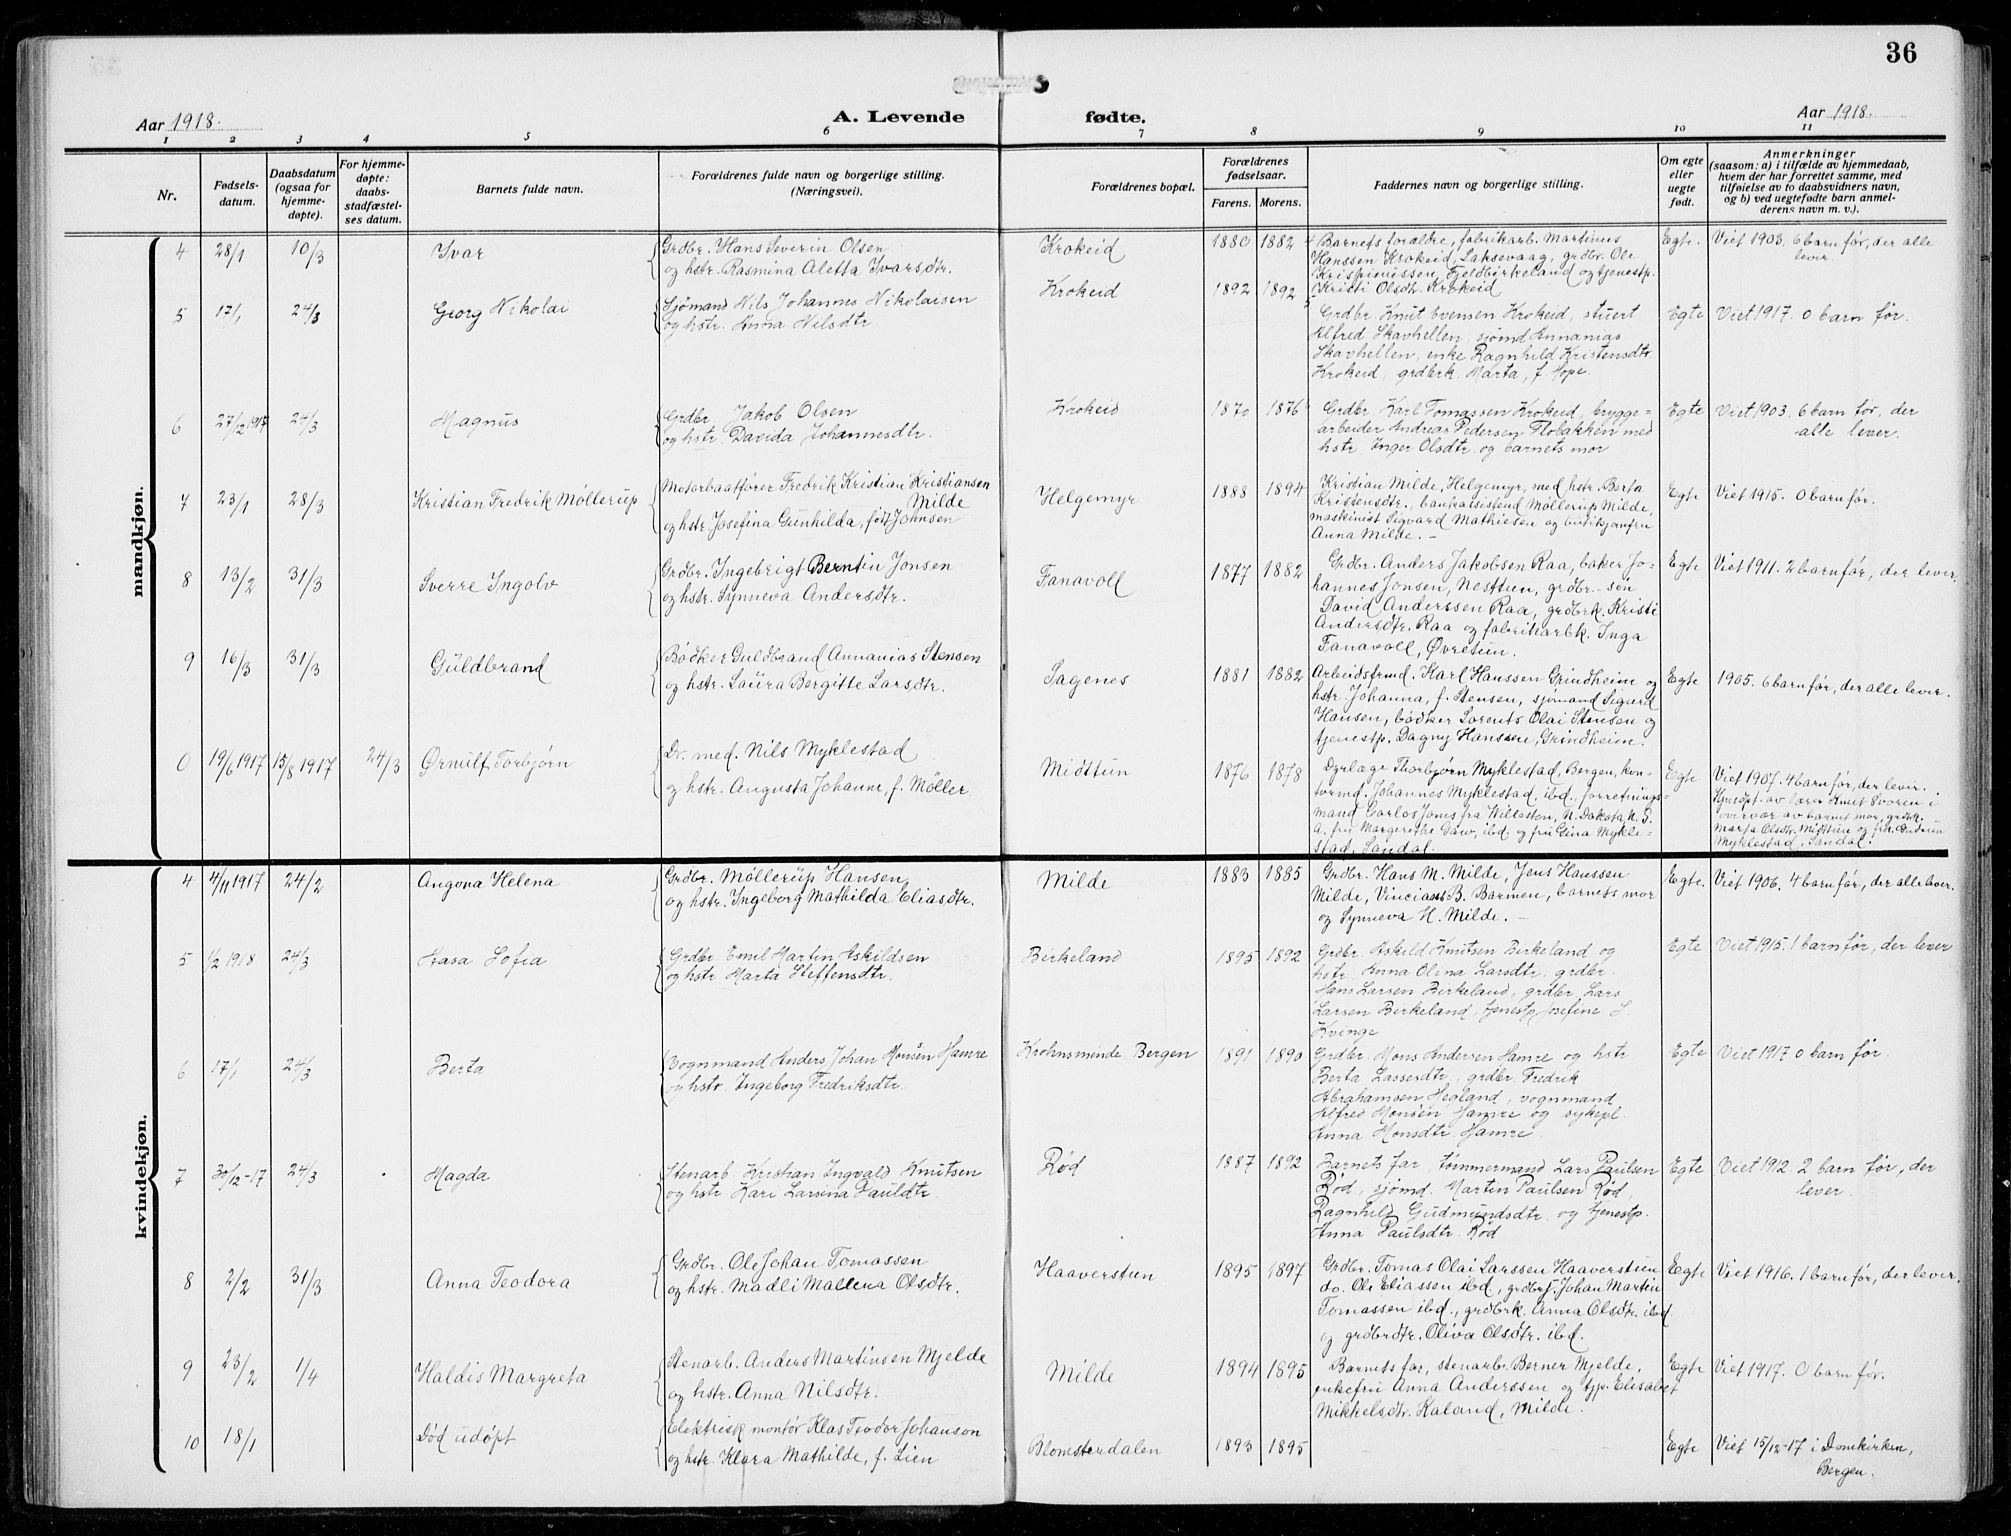 36
Aar 1918.
A. Levende fødte.
Aar 1918.
1 2 3 4 5 6 7 8 9 10 11
Nr.
Fødsels-
datum.
Daabsdatum
(ogsaa for
hjemme-
døpte).
For hjemme-
døpte:
daabs-
stadfæstel-
ses datum.
Barnets fulde navn.
Forældrenes fulde navn og borgerlige stilling.
(Næringsvei).
Forældrenes bopæl.
Forældrenes
fødselsaar.
Farens. Morens.
Faddernes navn og borgerlige stilling.
Om egte
eller
uegte
født.
Anmerkninger
(saasom: a) i tilfælde av hjemmedaab,
hvem der har forrettet samme, med
tilføielse av to daabsvidners navn,
og b) ved uegtefødte barn anmel-
derens navn m. v.).
mandkjøn.
4 28/1 10/3 Ivar
Grdbr. Hans Severin Olsen
og hstr. Rasmina Aletta Ivarsdtr.
Krokeid 1880 1882
Barnets forældre, fabrikarb. Martinus
Hanssen Krokeid, Laksevaag, grdbr. Ole
Krispinussen Fjeldbirkeland og tjenestp.
Kristi Olsdtr. Krokeid
Egte. Viet 1903. 6 barn før, der alle
lever.
5 17/1 24/3 Georg Nikolai
Sjömand Nils Johannes Nikolaisen
og hstr. Anna Nilsdtr.
Krokeid 1892 1892
Grdbr. Knut Evensen Krokeid, stuert
Alfred Skavhellen, sjömd. Annanias
Skavhellen, enke Ragnhild Kristensdtr.
Krokeid, grdbrk. Marta, f. Hope.
Egte Viet 1917. 0 barn før.
6 27/2 1917 24/3 Magnus
Grdbr. Jakob Olsen
og hstr. Davida Johannesdtr.
Krokeid 1870 1876
Grdbr. Karl Tomassen Krokeid, brygge=
arbeider Andreas Pedersen Flobakken med
hstr. Inger Olsdtr. og barnets mor
Egte Viet 1903. 6 barn før, der
alle lever.
7 23/1 28/3 Kristian Fredrik Møllerup
Motorbaatfører Fredrik Kristian Kristiansen
Milde
og hstr. Josefina Gunhilda, født Johnsen
Helgemyr 1888 1894
Kristian Milde, Helgemyr, med hstr. Berta
Kristensdtr., bankassistend Møllerup Milde,
maskinist Sigvard Mathiesen og butikjomfru
Anna Milde. -
Egte Viet 1915. 0 barn før.
8 13/2 31/3 Sverre Ingolv
Grdbr. Ingebrigt Berntin Jonsen
og hstr. Synneva Andersdtr.
Fanavoll 1877 1882
Grdbr. Anders Jakobsen Raa, baker Jo-
hannes Jonsen, Nesttun, grdbr.-søn
David Anderssen Raa, grdbrk. Kristi
Andersdtr. Raa og fabrikarbk. Inga
Fanavoll, Øvretun.
Egte Viet 1911. 2 barn før, der lever.
9 16/3 31/3 Guldbrand
Bødker Guldbrand Annanias Stensen
og hstr. Laura Bergitte Larsdtr.
Sagenes 1881 1882
Arbeidsfrmd. Karl Hanssen Grindheim og
hstr. Johanna, f. Stensen, sjömand Sigurd
Hansen, bødker Lorents Olai Stensen og
tjenestp. Dagny Hanssen, Grindheim.
Egte 1905. 6 barn før, der alle lever.
0 19/6 1917 15/8 1917 24/3 Ørnulf Torbjørn
Dr. med. Nils Myklestad
og hstr. Augusta Johanne, f. Møller
Midttun 1876 1878
Dyrlæge Thorbjørn Myklestad, Bergen, kon-
tormd. Johannes Myklestad, ibd., forretnings-
mand Carlos Jones fra Williston, N. Dakota N. S.
A. fru Margrethe Gaw, ibd. og fru Gina Mykle-
stad, Sandal.
Egte Viet 1907. 4 barn før, der lever.
Hjmdøpt. av lærer Knut Svoren i
overvær av barnets mor, grdbk.
Marta Olsdtr. Midttun og frk. Gudrun
Myklestad, Sandal.
kvindekjøn.
4 4/11 1917 24/2 Angona Helena
Grdbr. Møllerup Hansen
og hstr. Ingeborg Mathilda Eliasdtr.
Milde 1883 1885
Grdbr. Hans M. Milde, Jens Hanssen
Milde, Vincians B. Barmen, barnets mor
og Synneva H. Milde. -
Egte. Viet 1906. 4 barn før, der alle lever.
5 1/2 1918 24/3 Aasa Sofia
Grdbr. Emil Martin Askildsen
og hstr. Marta Steffensdtr.
Birkeland 1895 1892
Grdbr. Askild Knutsen Birkeland og
hstr. Anna Olena Larsdtr., grdbr.
Hans Larsen Birkeland, grdbr. Lars
Larsen Birkeland, tjenestp. Josefine S.
Kvinge
Egte Viet 1915. 1 barn før, der lever
6 17/1 24/3 Berta
Vognmand Anders Johan Monsen Hamre
og hstr. Ingeborg Fredriksdtr.
Krohnsminde Bergen 1891 1890
Grdbr. Mons Andersen Hamre og hstr
Berta Lassesdtr., grdbr. Fredrik
Abrahamsen Hegland, vognmand
Alfred Monsen Hamre og sykepl.
Anna Monsdtr. Hamre.
Egte Viet 1917 0 barn før.
7 30/12-17 24/3 Magda
Stenarb. Kristian Ingvald Knutsen
og hstr. Kari Larsina Pauldtr.
Rød 1887 1892
Barnets far, tømmermand Lars Paulsen
Rød, sjömd. Martin Paulsen Rød,
Ragnhild Gudmundsdtr. og tjenestp.
Anna Paulsdtr. Rød
Egte Viet 1912. 2 barn før, der
lever.
8 2/2 31/3 Anna Teodora
Grdbr. Ole Johan Tomassen
og hstr. Madli Mallena Olsdtr.
Haaverstun 1895 1897
Grdbr. Tomas Olai Larssen Haaverstun
do. Ole Eliassen ibd., grdbrs. Johan Martin
Tomassen ibd., grdbrk. Anna Olsdtr. ibd
og grdbrdtr. Oliva Olsdtr. ibd.
Egte Viet 1916. 1 barn før, der lever.
9 23/2 1/4 Haldis Margreta
Stenarb. Anders Martinsen Mjelde
og hstr. Anna Nilsdtr.
Milde 1894 1895
Barnets far, stenarb. Berner Mjelde,
enkefru Anna Anderssen og tjp. Elisabet
Mikkelsdtr. Kaland, Milde.
Egte Viet 1917. 0 barn før.
10 18/1 Død udøpt
Elektrisk montør Klas Teodor Johanson
og hstr. Klara Mathilde, f. Lien
Blomsterdalen 1893 1895
Egte Viet 15/12-17 i Domkirken,
Bergen.